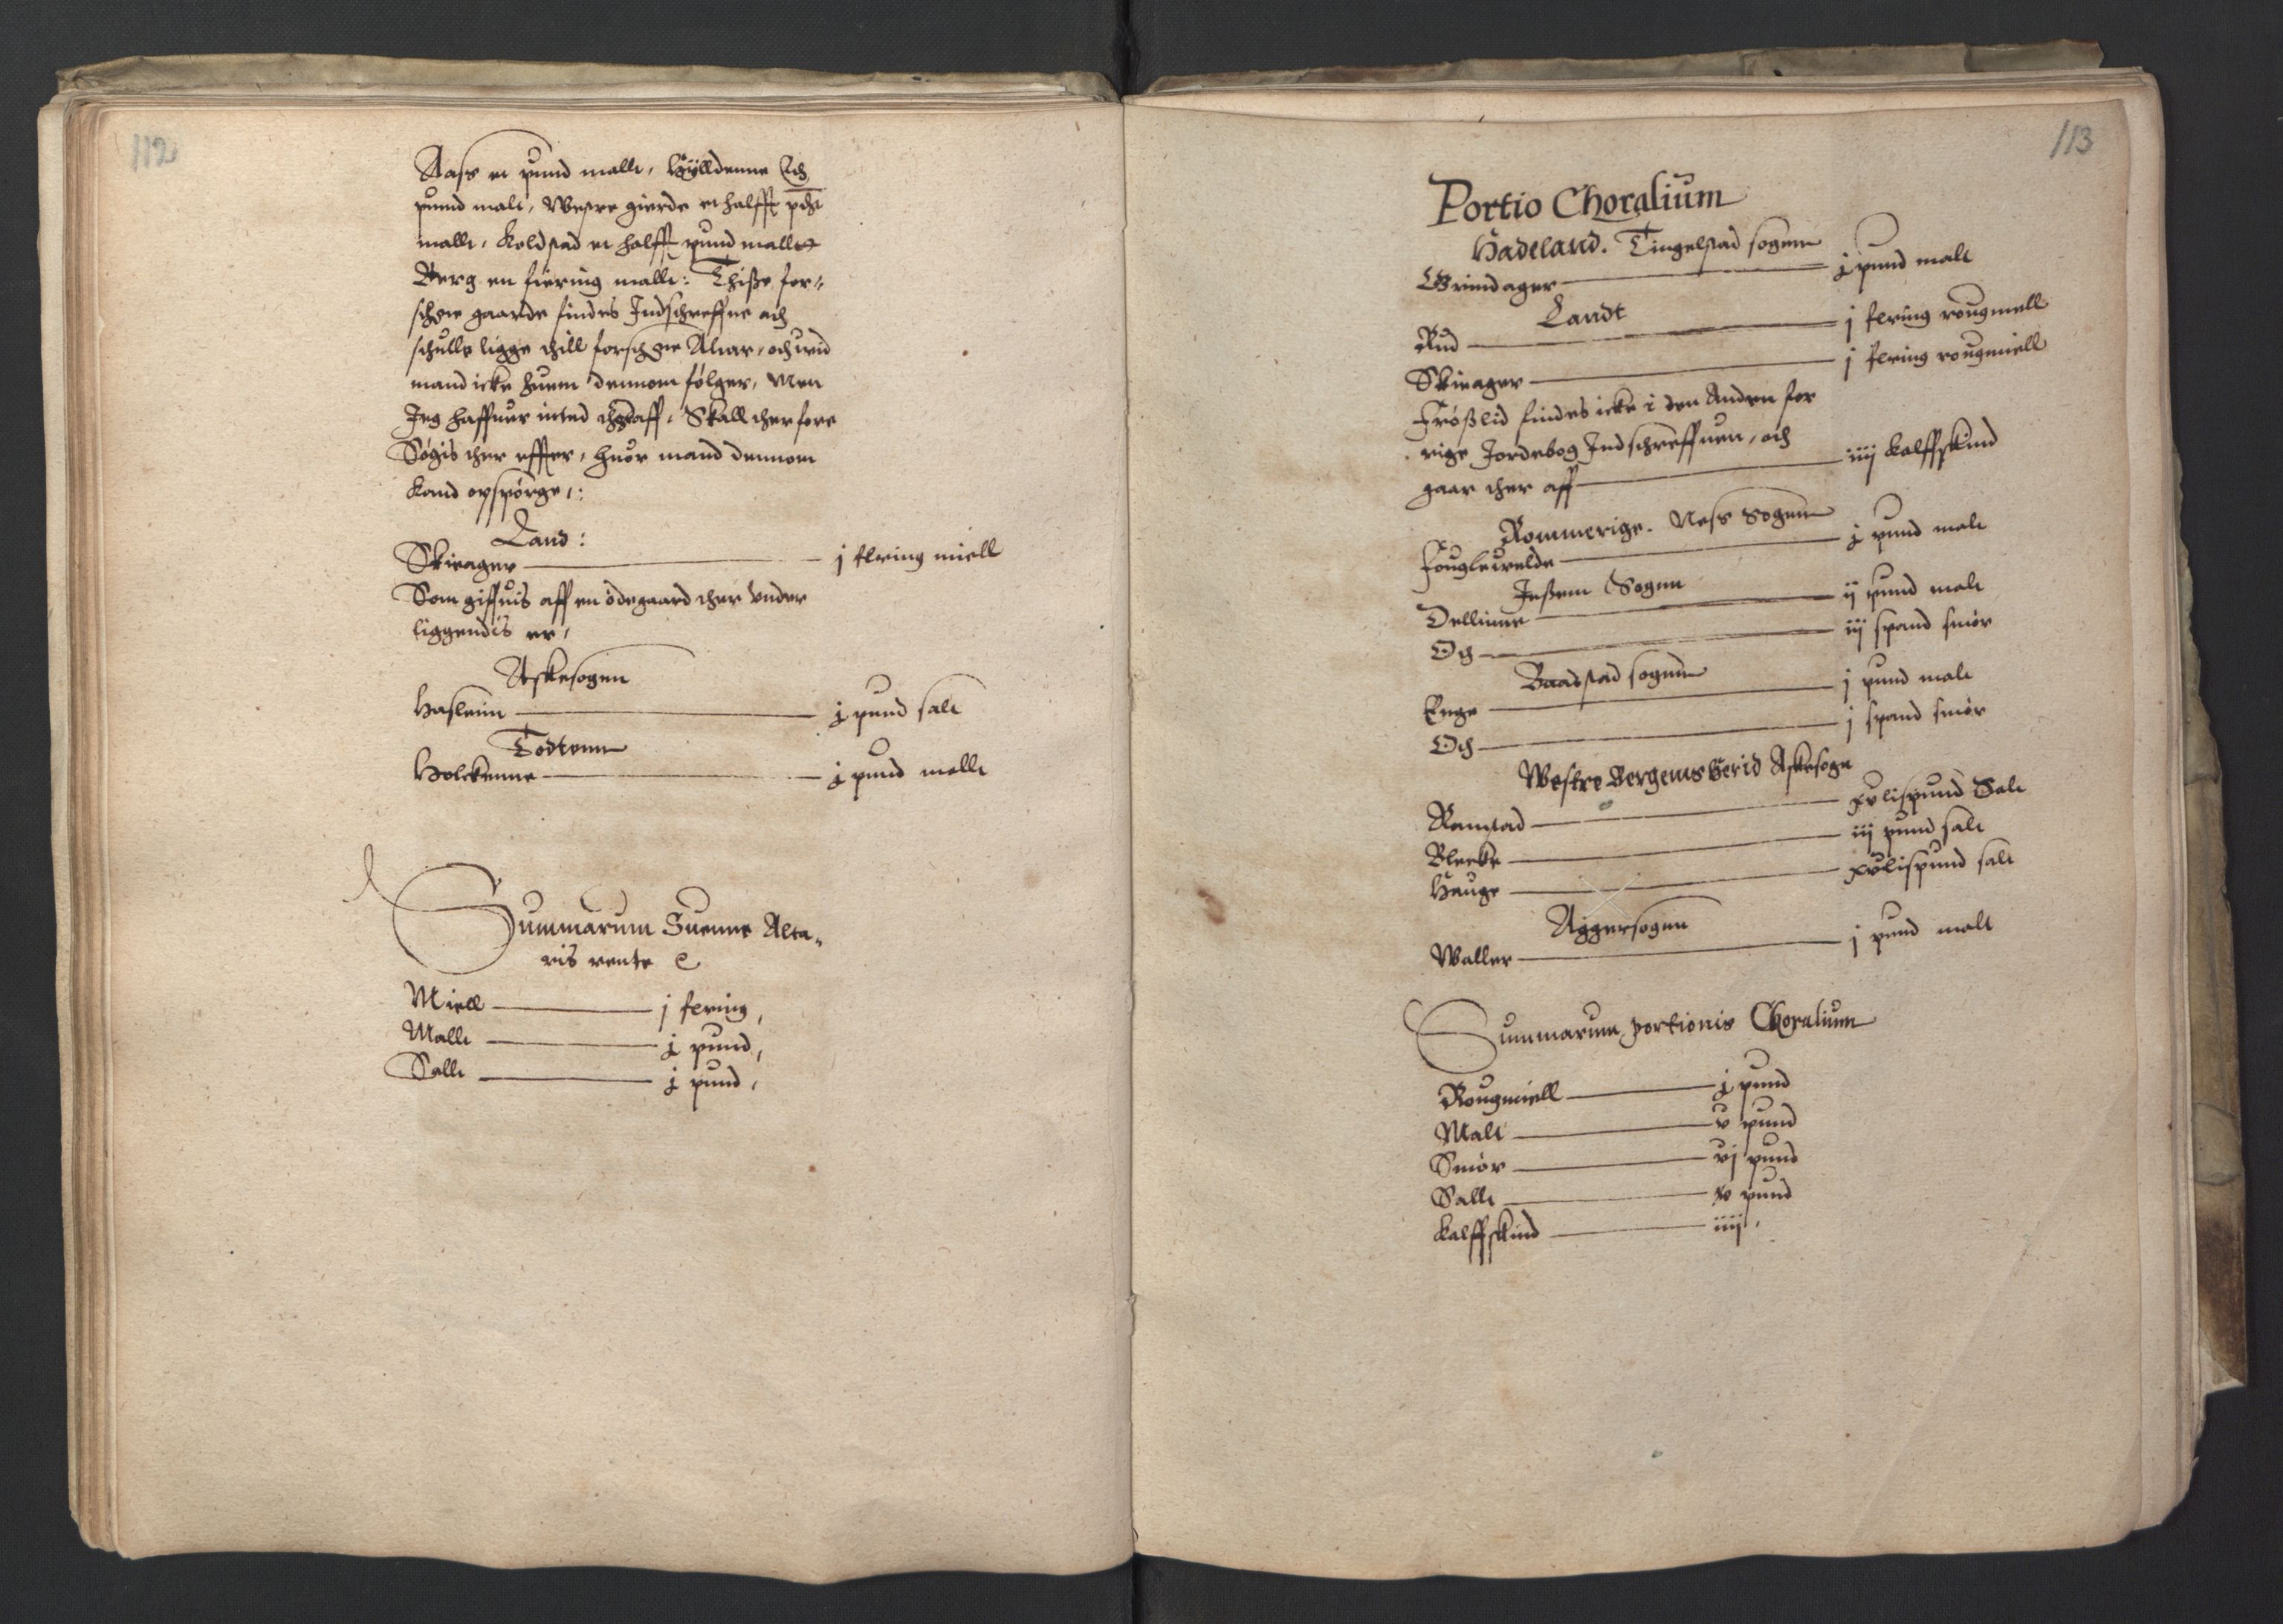 112
Aass et pund mallt, Hylldenne Och
pund malt, Westre gierde et halfft pdt
mallt, Koldstad et halfft pund mallt
Berg en fiering mallt: Thisse for-
schne gaarde findes Indschreffne och
schulle ligge thill forschne Altar, och ueed
mand icke huem dennom følger, Men
Jeg haffuer inted theraff, Skall ther fore
Søgis ther effter, huor mand dennom
kand opspørge,:
Land:
Skiager j fering miell
Som giffuis aff en ødegaard ther vnder
liggendis er,
Askesogen
Hasleim j pund salt
Todtenn
Holckenne j pund mallt
Summarum Suenne Alta-
ris rente
Miell j fering,
Mallt j pund,
Sallt j pund,
113
Portio Choralium
Hadeland. Tingelstad sogenn
Grindager j pund malt
Landt
Rud j fering rougmell
Skiager j fering rougmiell
Frøsslid findes icke i den Anden for
rige Jordebog Indschreffuen, och
gaar ther aff iiij kalffskind
Rommerige. Ness Sogenn
Fougleuelde j pund malt
Jessem Sogen
Dellinne ij pund malt
Och iij spand smør
Baadstad sogenn
Enge j pund malt
Och j spand smør
Westre Bergems Herid Askesogn
Ramstad xv lispund Salt
Blecke iij pund salt
Hauge xv lispund salt
Aggersogen
Waller j pund malt
Summarum portionis Choralium
Rougmiell j pund
Malt v pund
Smør vj pund
Sallt v pund
Kalffskind iiij,